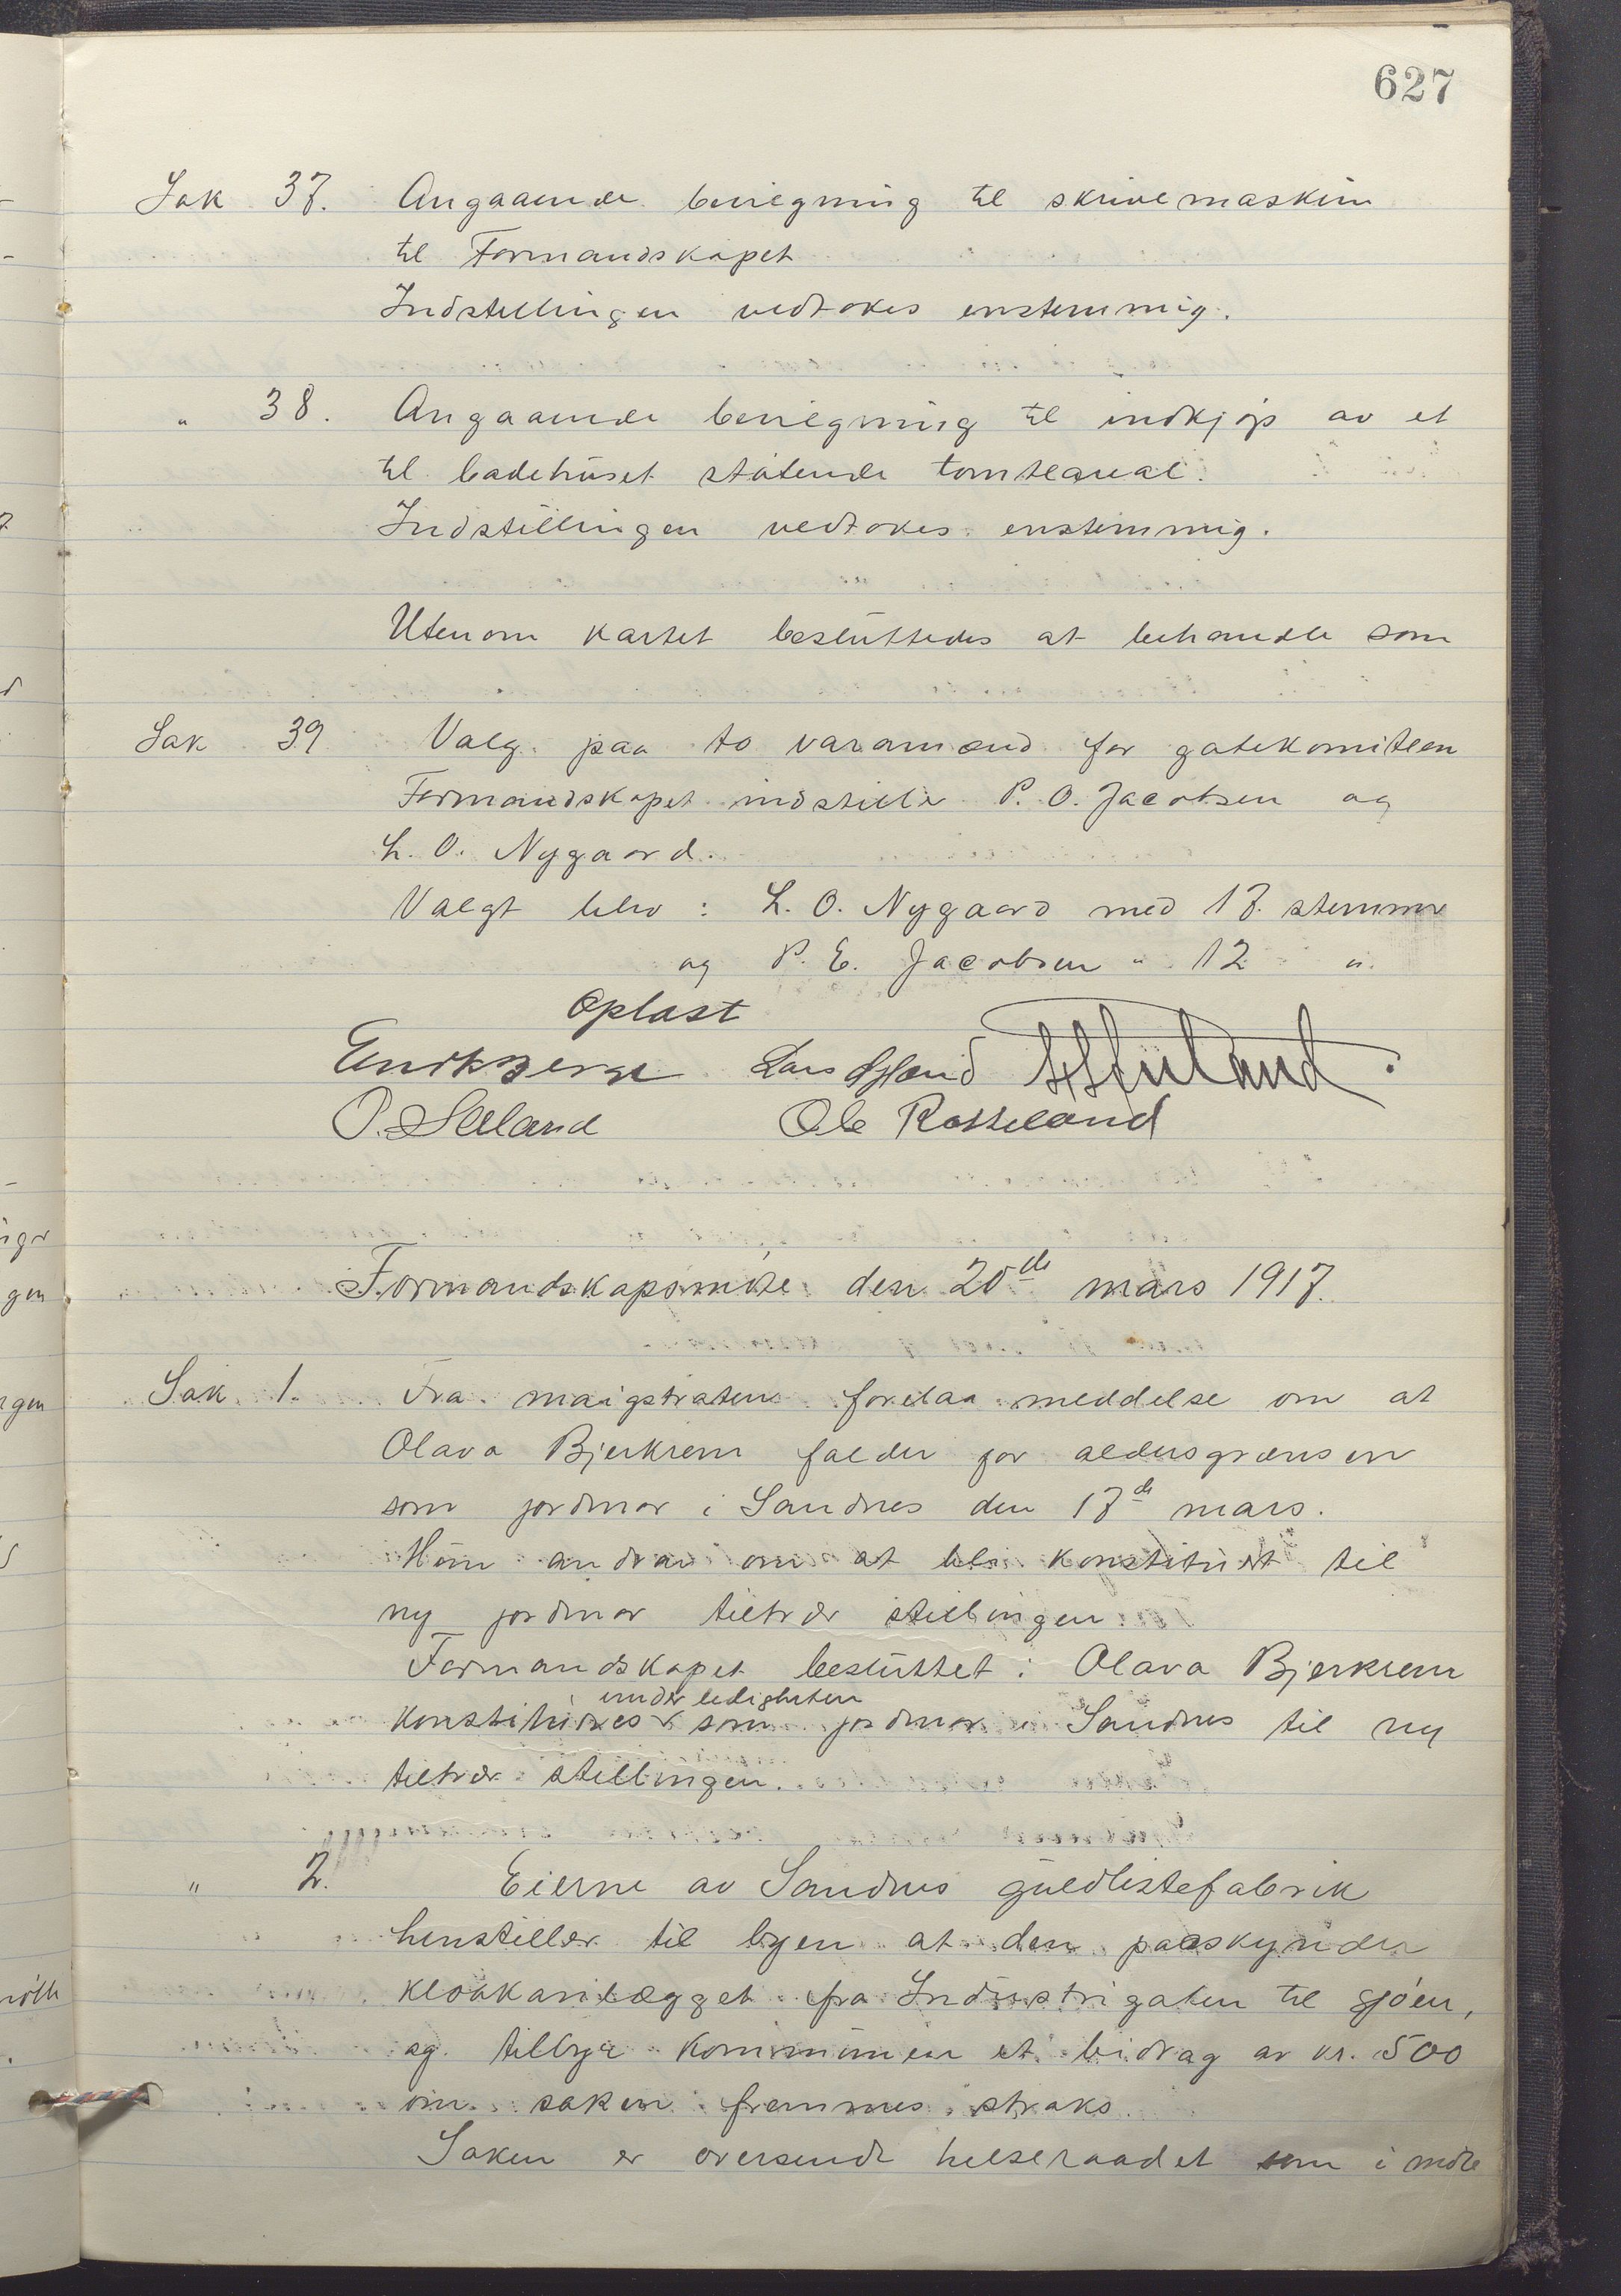 627
Sak 37. Angaaende bevilgning til skrivemaskin
til Formandskapet
Indstillingen vedtokes enstemmig.
" 38. Angaaende bevilgning til indkjøp av et
til badehuset støtende tomteareal.
Indstillingen vedtokes enstemmig.
Utenom kartet besluttedes at behandle som
Sak 39 Valg paa to varamænd for gatekomiteen
Formandskapet indstiller P. O. Jacobsen og
L. O. Nygaard.
Valgt blev: L. O. Nygaard med 17 stemmer
og P. E. Jacobsen " 12 "
Oplæst
Lars
O. Ole Rosseland
Formandskapsmøte den 20de mars 1917.
Sak 1. Fra maigstraten forelaa meddelse om at
Olava Bjerkrem falder for aldersgrænsen
som jordmor i Sandnes den 17de mars.
Hun andrar om at bli konstituert til
ny jordmor tiltrær stillingen.
Formandskapet besluttet: Olava Bjerkrem
under ledigheten
konstitueres som jordmor i Sandnes til ny
tiltrær stillingen.
" 2. Eierne av Sandnes guldlistefabrik
henstiller til byen at den paaskynder
kloakanlægget fra Industrigaten til sjøen,
og tilbyr kommunen et bidrag av kr. 500
om saken fremmes straks.
Saken er oversendt helseraadet som i møte